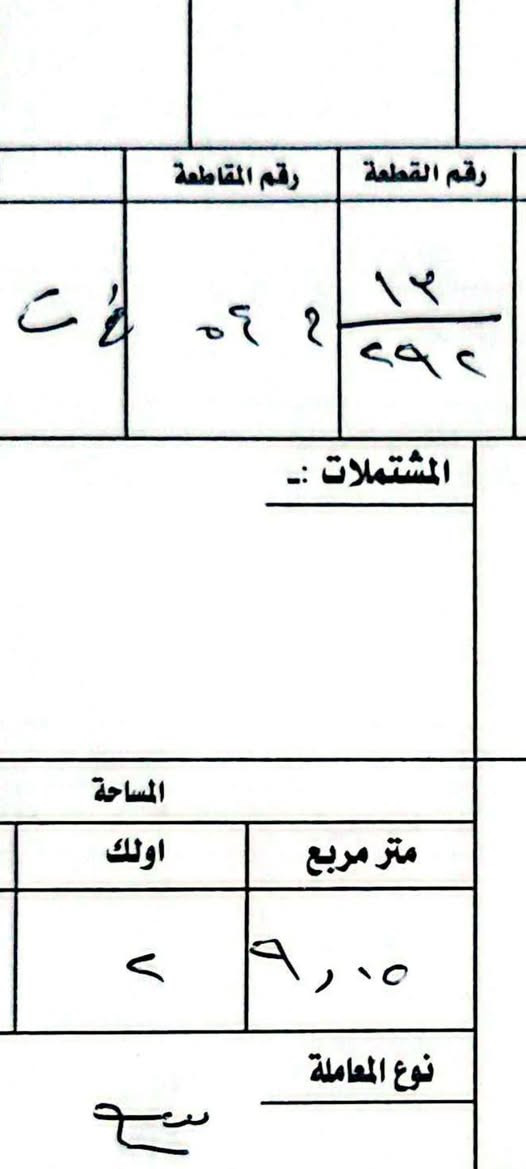 رقم القطعة رقم المقاطعة
١٣
٢٩٢
المشتملات :ـ
المساحة
متر مربع اولك
٩,٠٥ ٢
نوع المعاملة
بيع